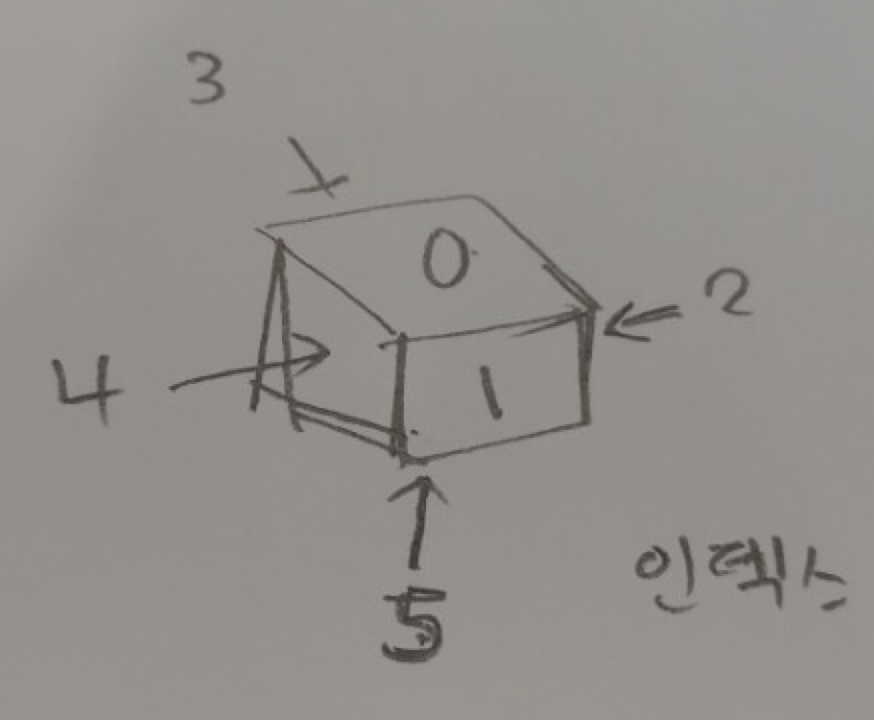 3
0
2
4
1
5
인덱스